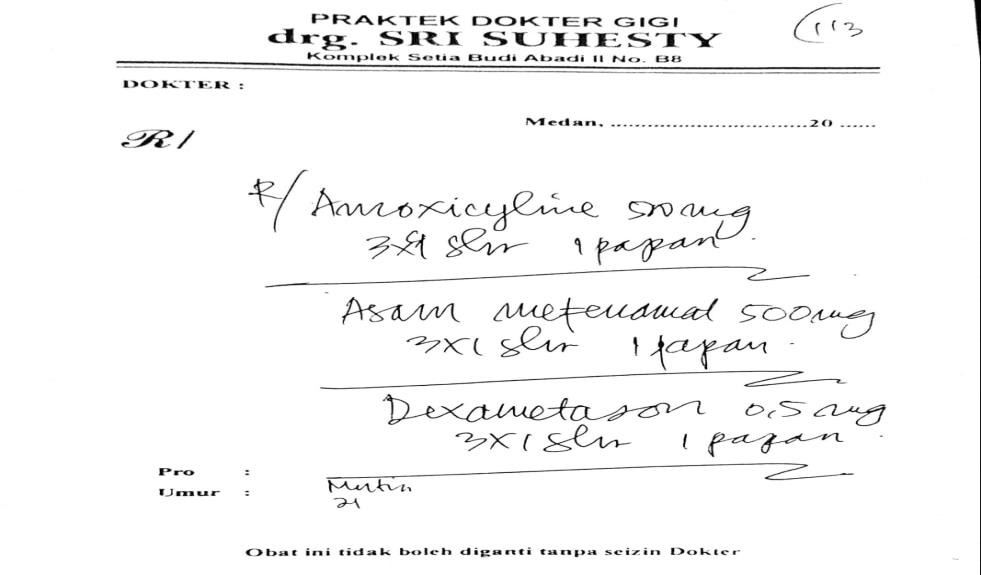 PRAKTEK DOKTER GIGI
drg. SRI SUHESTY
Komplek Setia Budi Abadi II No. B8
113
DOKTER :
Medan, ...............................20 ......
R/
R/ Amoxicyline 500 mg
3x1 slm 1 papan
Asam mefenamat 500 mg
3x1 slm 1 papan
Dexametason 0,5 mg
3x1 slm 1 papan
Pro :
Umur : 21
Obat ini tidak boleh diganti tanpa seizin Dokter